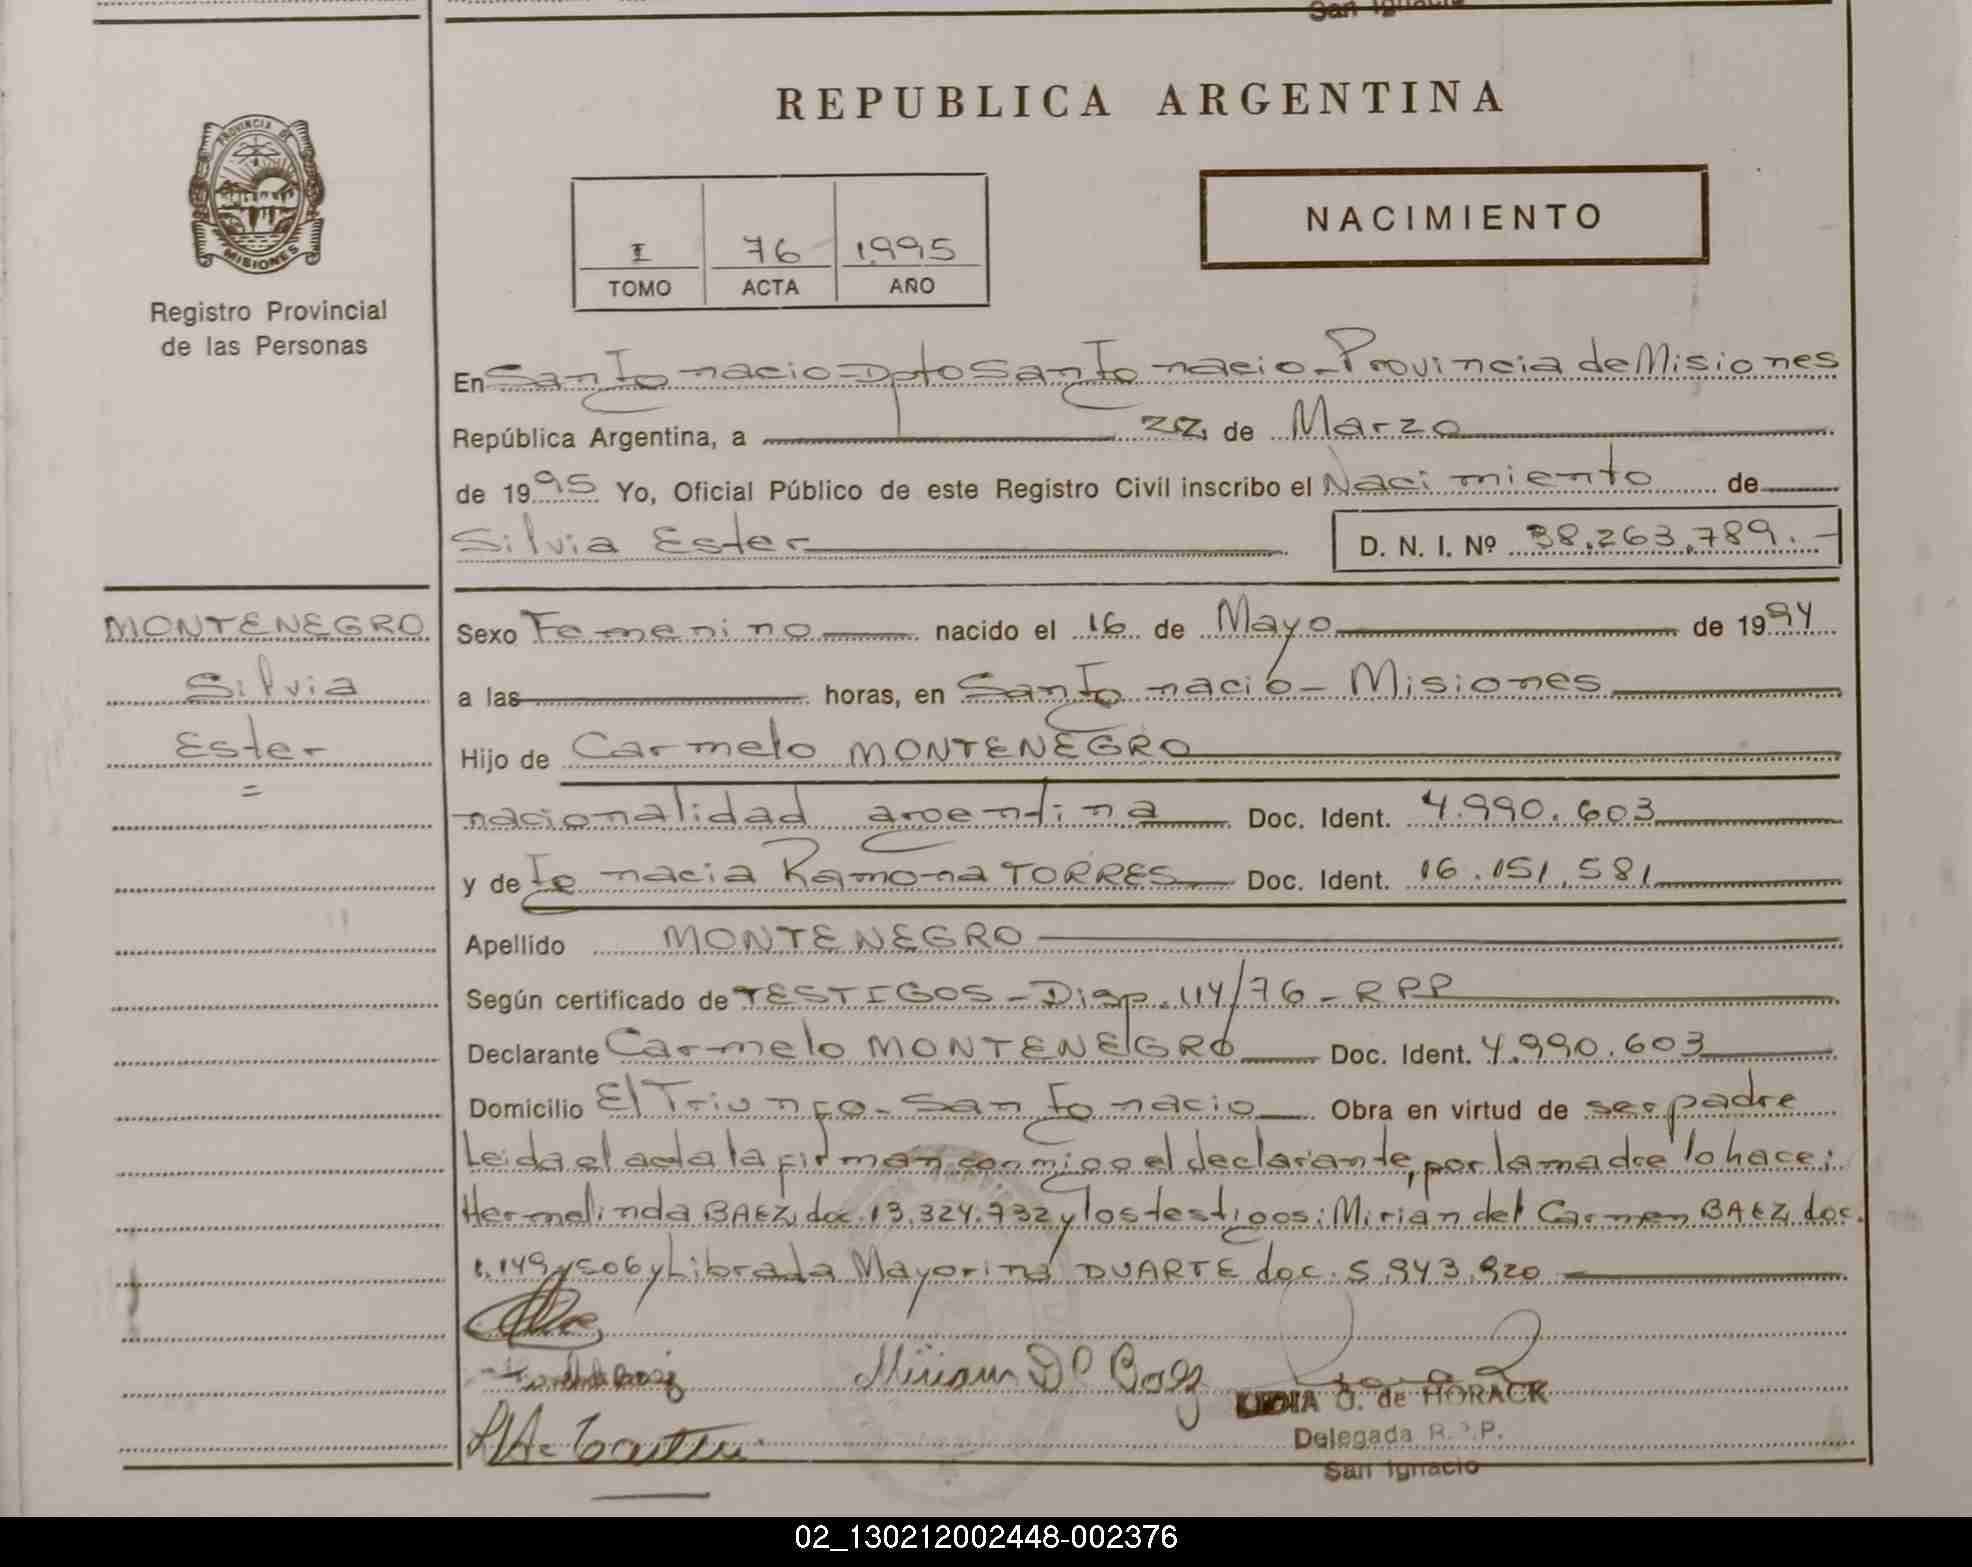 San Ignacio
REPUBLICA ARGENTINA
PROVINCIA DE
MISIONES
Registro Provincial
de las Personas
I 76 1.995
TOMO ACTA AÑO
NACIMIENTO
En San Ignacio-Dpto San Ignacio-Provincia de Misiones
República Argentina, a 22 de Marzo
de 1995 Yo, Oficial Público de este Registro Civil inscribo el Nacimiento de
Silvia Ester D. N. I. Nº 38.263.789.-
MONTENEGRO
Silvia
Ester
=
Sexo Femenino nacido el 16 de Mayo de 1994
a las horas, en San Ignacio - Misiones
Hijo de Carmelo MONTENEGRO
nacionalidad argentina Doc. Ident. 4.990.603
y de Ignacia Ramona TORRES Doc. Ident. 16.151.581
Apellido MONTENEGRO
Según certificado de TESTIGOS - Disp. 114/76 - RPP
Declarante Carmelo MONTENEGRO Doc. Ident. 4.990.603
Domicilio El Triunfo - San Ignacio Obra en virtud de ser padre
Leida el acta la firman conmigo el declarante, por la madre lo hace:
Hermelinda BAEZ, doc. 13.324.732 y los testigos: Mirian del Carmen BAEZ, doc.
y Librada Mayorina DUARTE doc. 5.943.920
Miriam Baez
LIDIA O. de HORACK
Delegada R.P.P.
San Ignacio
02_130212002448-002376